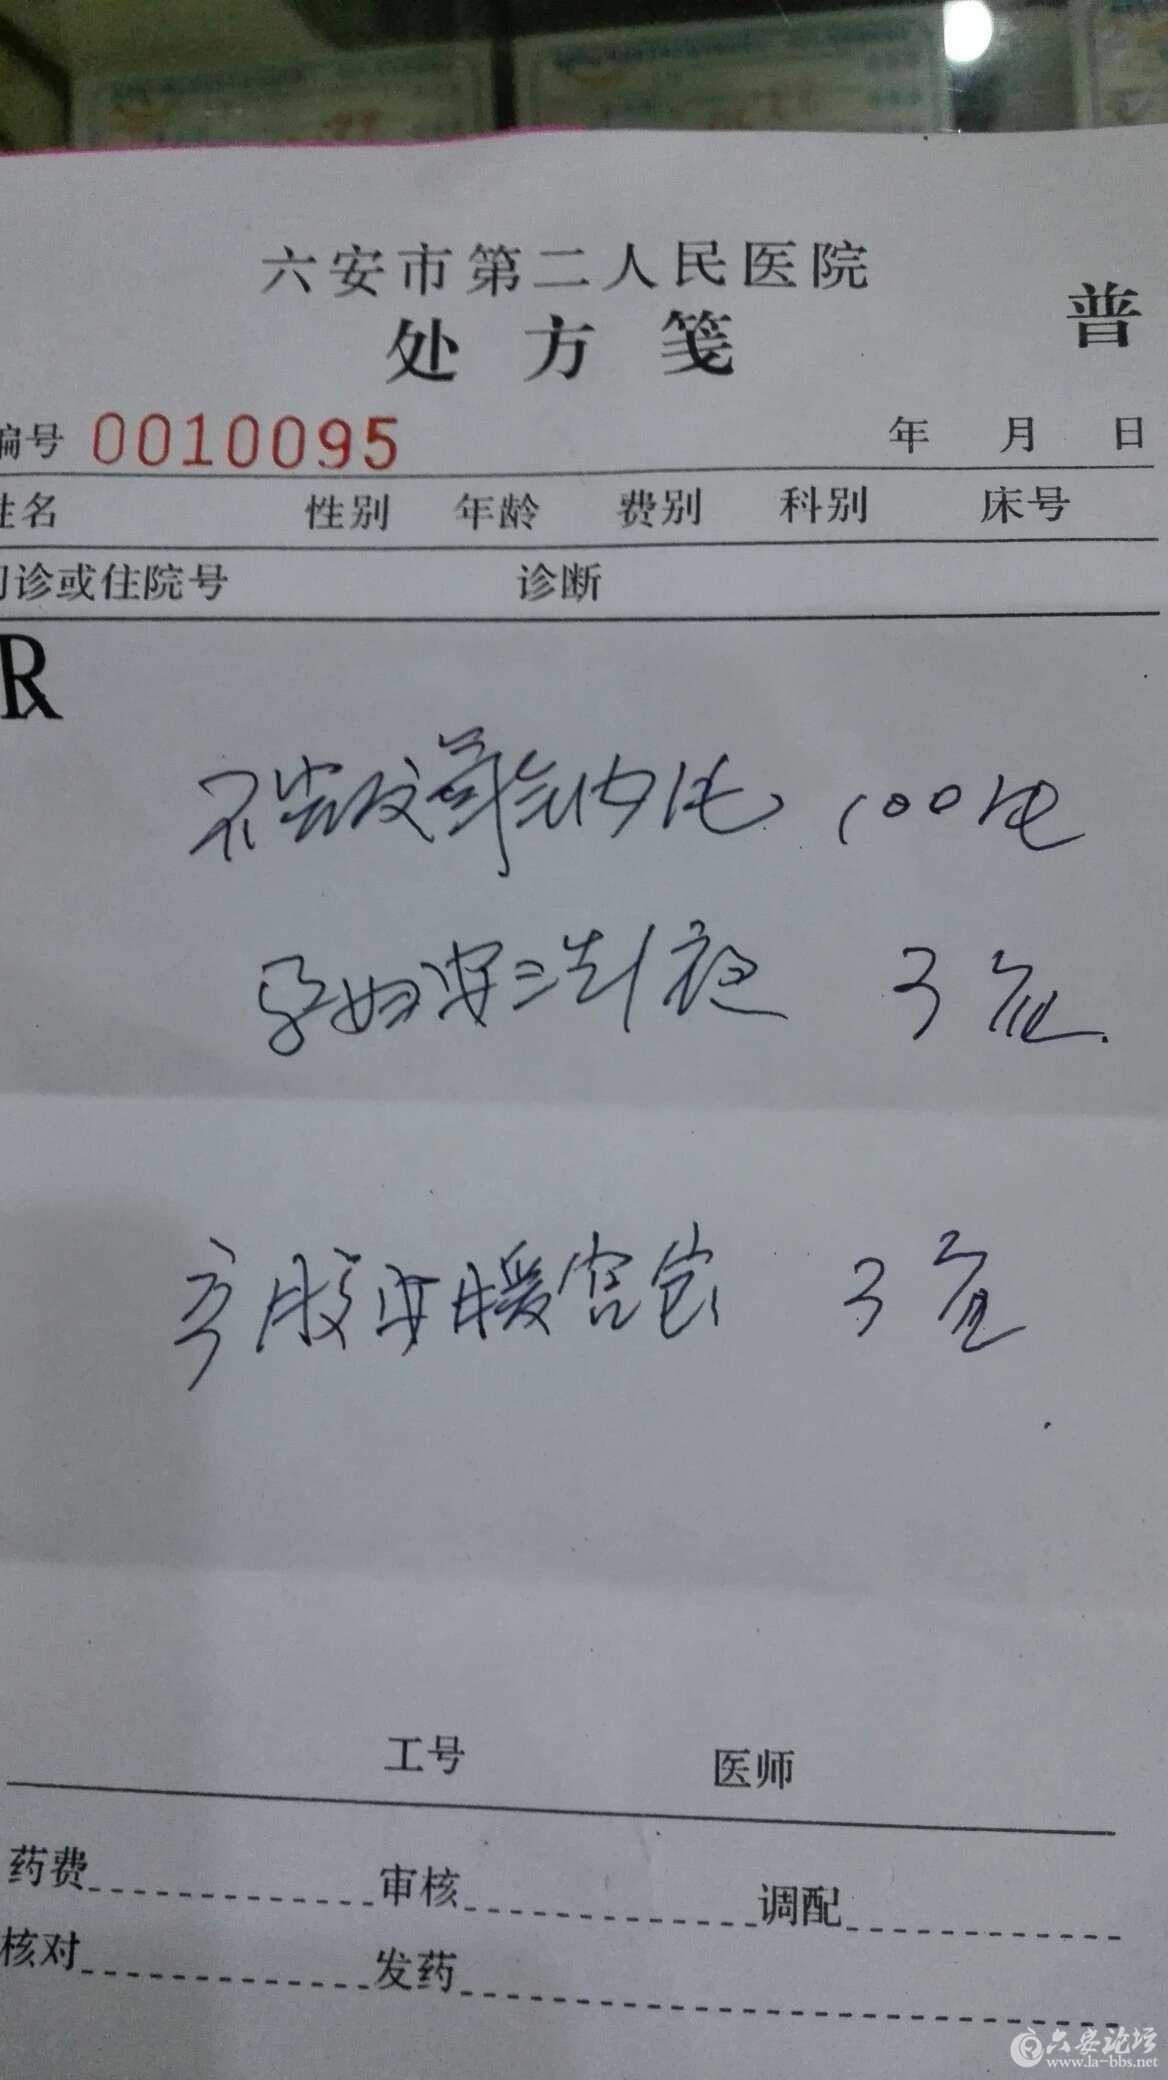 六安市第二人民医院
处方笺 普
编号 0010095 年 月 日
姓名 性别 年龄 费别 科别 床号
门诊或住院号 诊断
R
100
孕妇安洗液 3
暖宫 3
工号 医师
药费 审核 调配
核对 发药
六安论坛
www.la-bbs.net